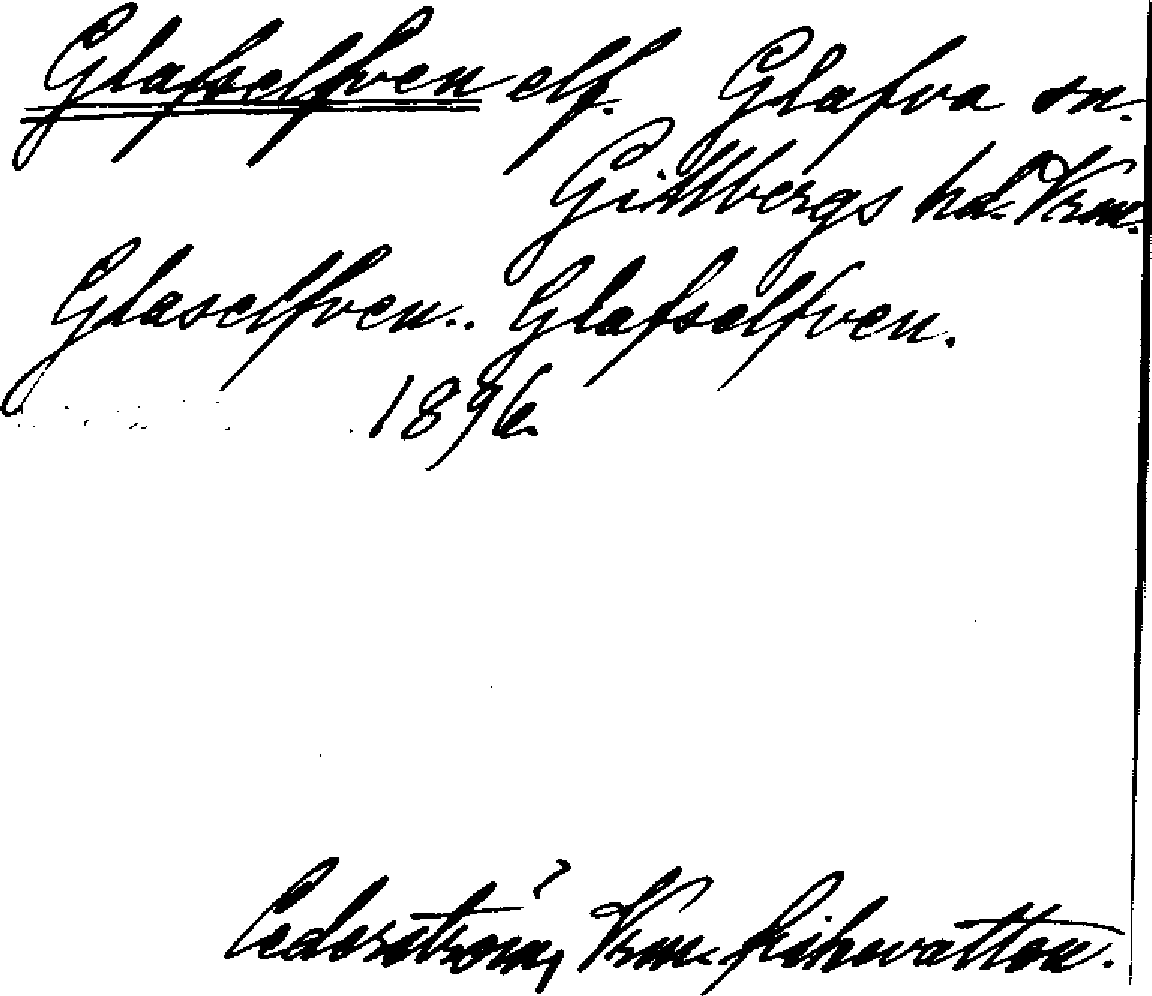 Glafselfven elf. Glafva sn.
Gillbergs hd. Vrm.
Glaselfven.. Glafselfven.
1896.
Cederström, Vrm. fiskevatten.